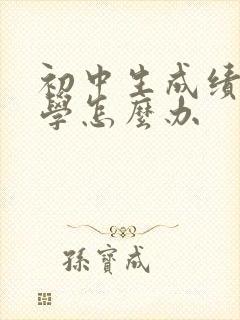 初中生成绩
學怎麼办
孫寶成